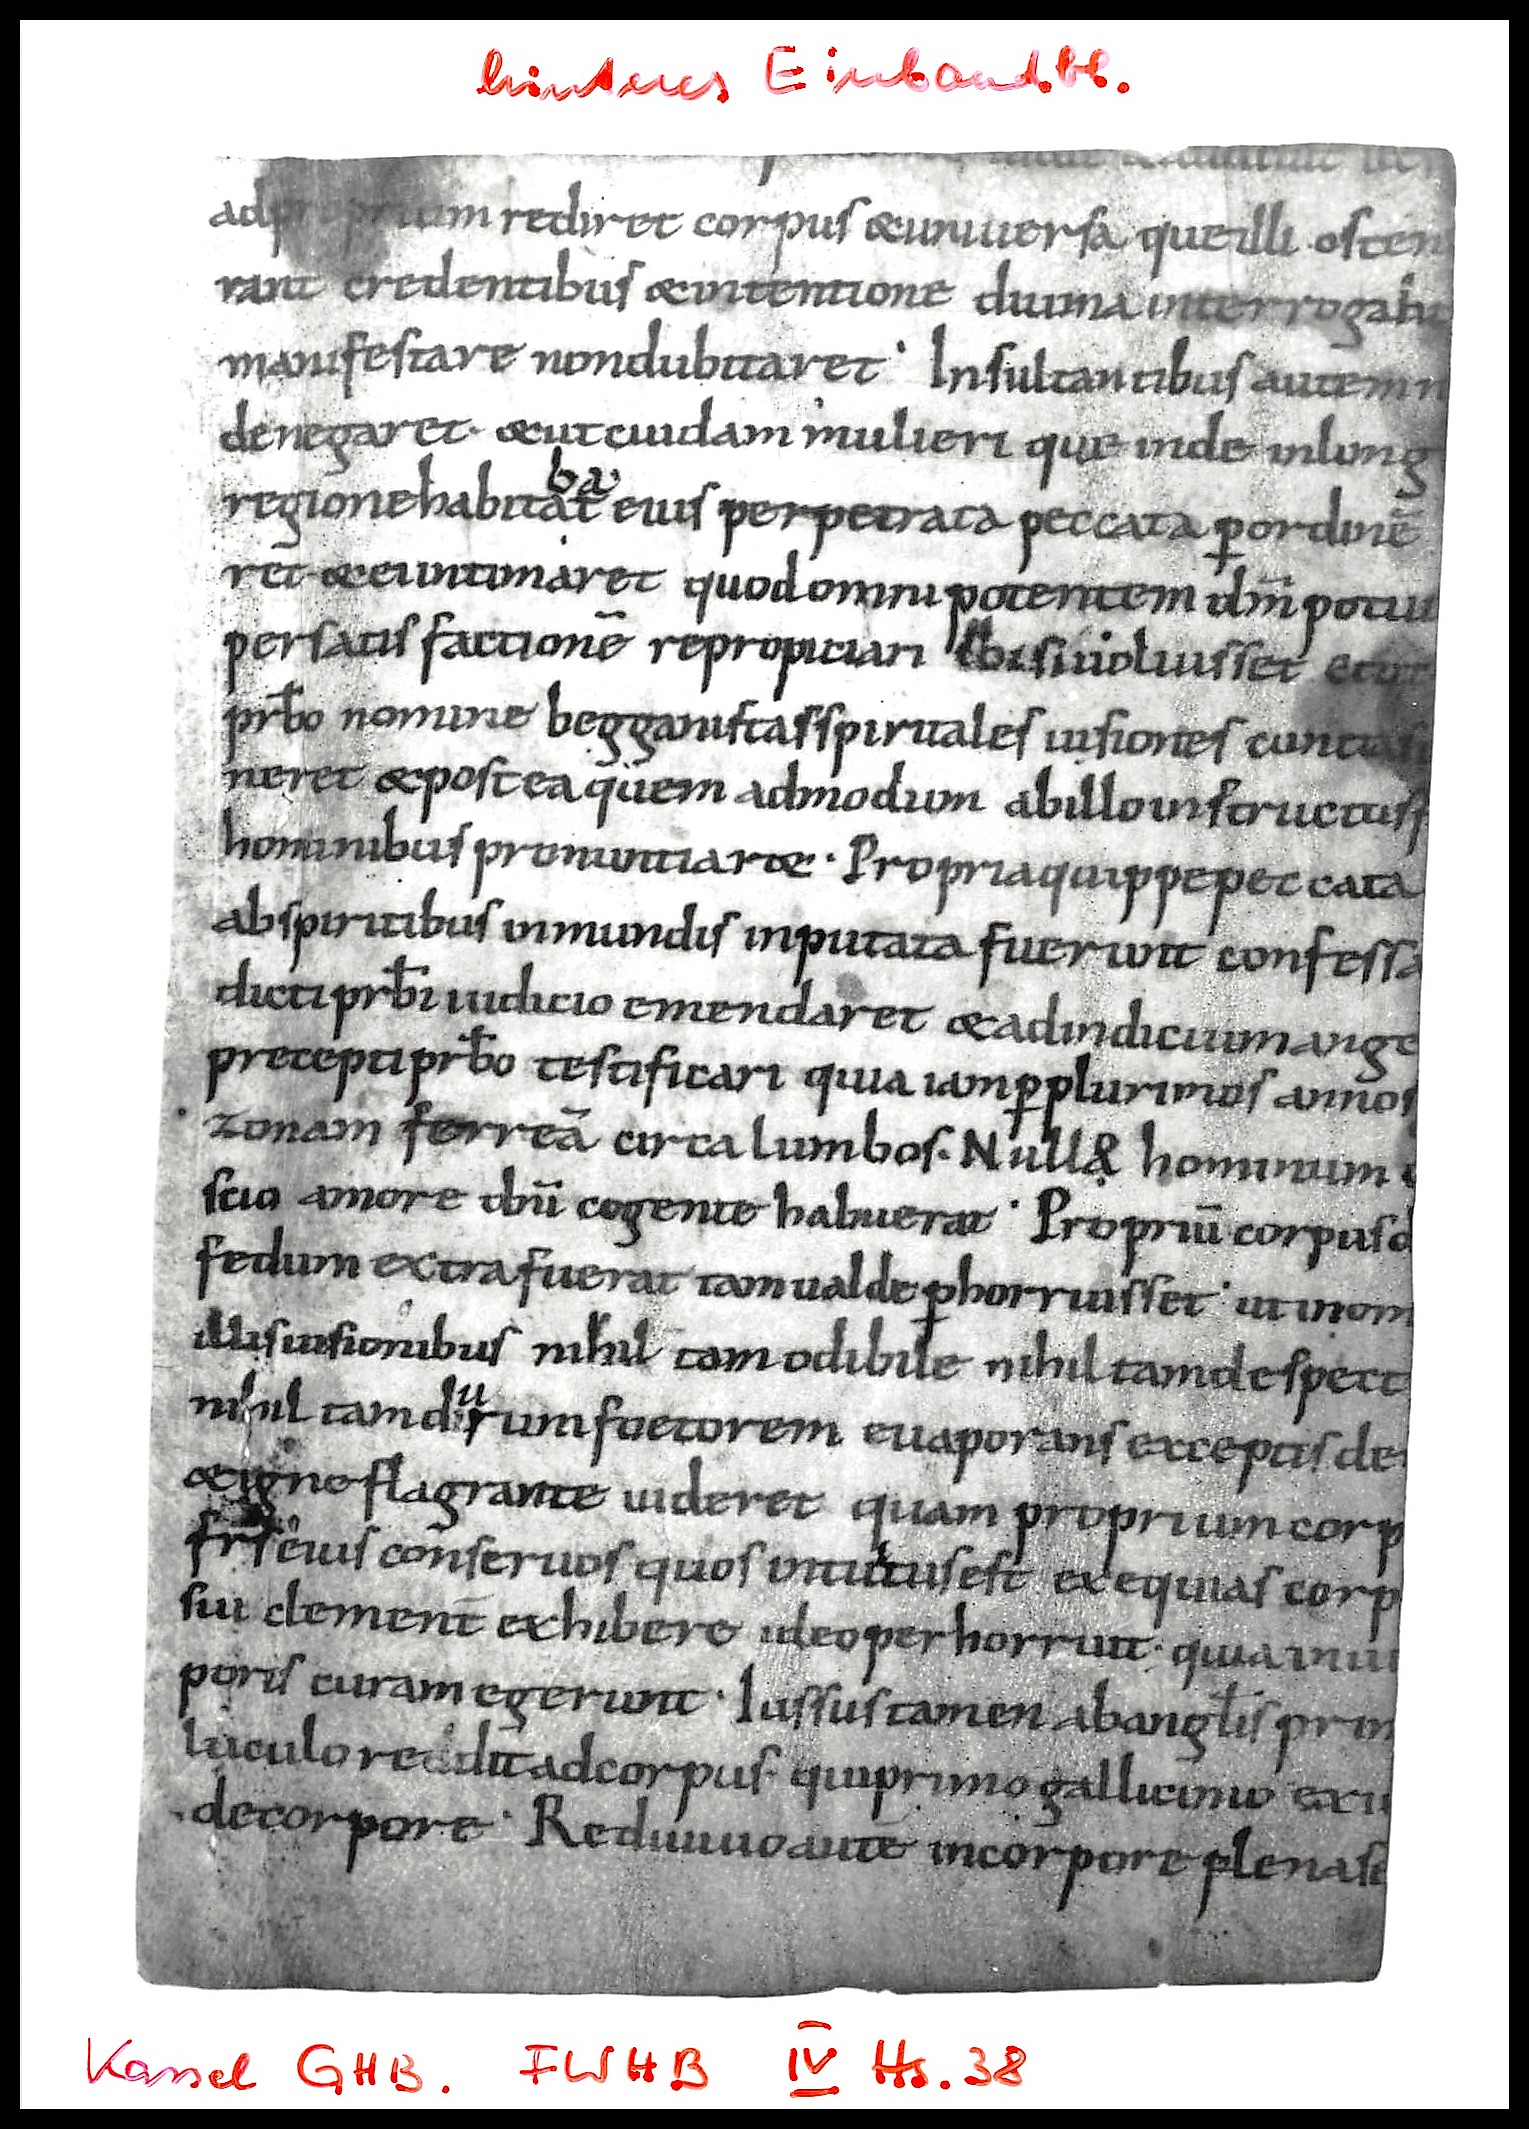 hinteres Einbandbl.
rediret corpus &uniuersa queilli osten
rant credentibus &intentione diuina interrogantib
manifestare nondubitaret· Insultantibus autem n
denegaret· &utcuidam mulieri que inde inlong
regionehabitabat eius perpetrata peccata ꝑordinē
ret &eiintimaret quodomnipotentem dnm̄ potuis
persatisfactionē repropitiari sibisiuoluisset
prb̄o nomine begganistasspiritales uisiones cunctas
neret &postea quem admodum abilloinstructus
hominibus pronuntiaret· Propriaquippepeccata
abspiritibus inmundis inputata fuerunt confessa
dictiprb̄i iudicio emendaret &adindicium ange
preceptiprb̄o testificari quia iamꝑplurimos annos
zonam ferreā circa lumbos· Null& hominum
scio amore dnī cogente habuerat· Propriū corpus d
fedum extrafuerat tamualde ꝑhorruisset· utinom
illisuisionibus nihil tam odibile nihil tamdespect
nihil tamdurum foetorem euaporans exceptis de
&igneflagrante uideret quam proprium corp
frs̄ eius conseruos quos intuitusest exequias corp
sui clement̄ exhibere ideoperhorruit· quiainiu
poris curam egerunt· Iussustamen abangl̄is prim
luculo rediit adcorpus· quiprimo gallicinio exi
decorpore· Rediuiuoautē incorpore plenase
Kassel GHB. FWHB IV Hs. 38